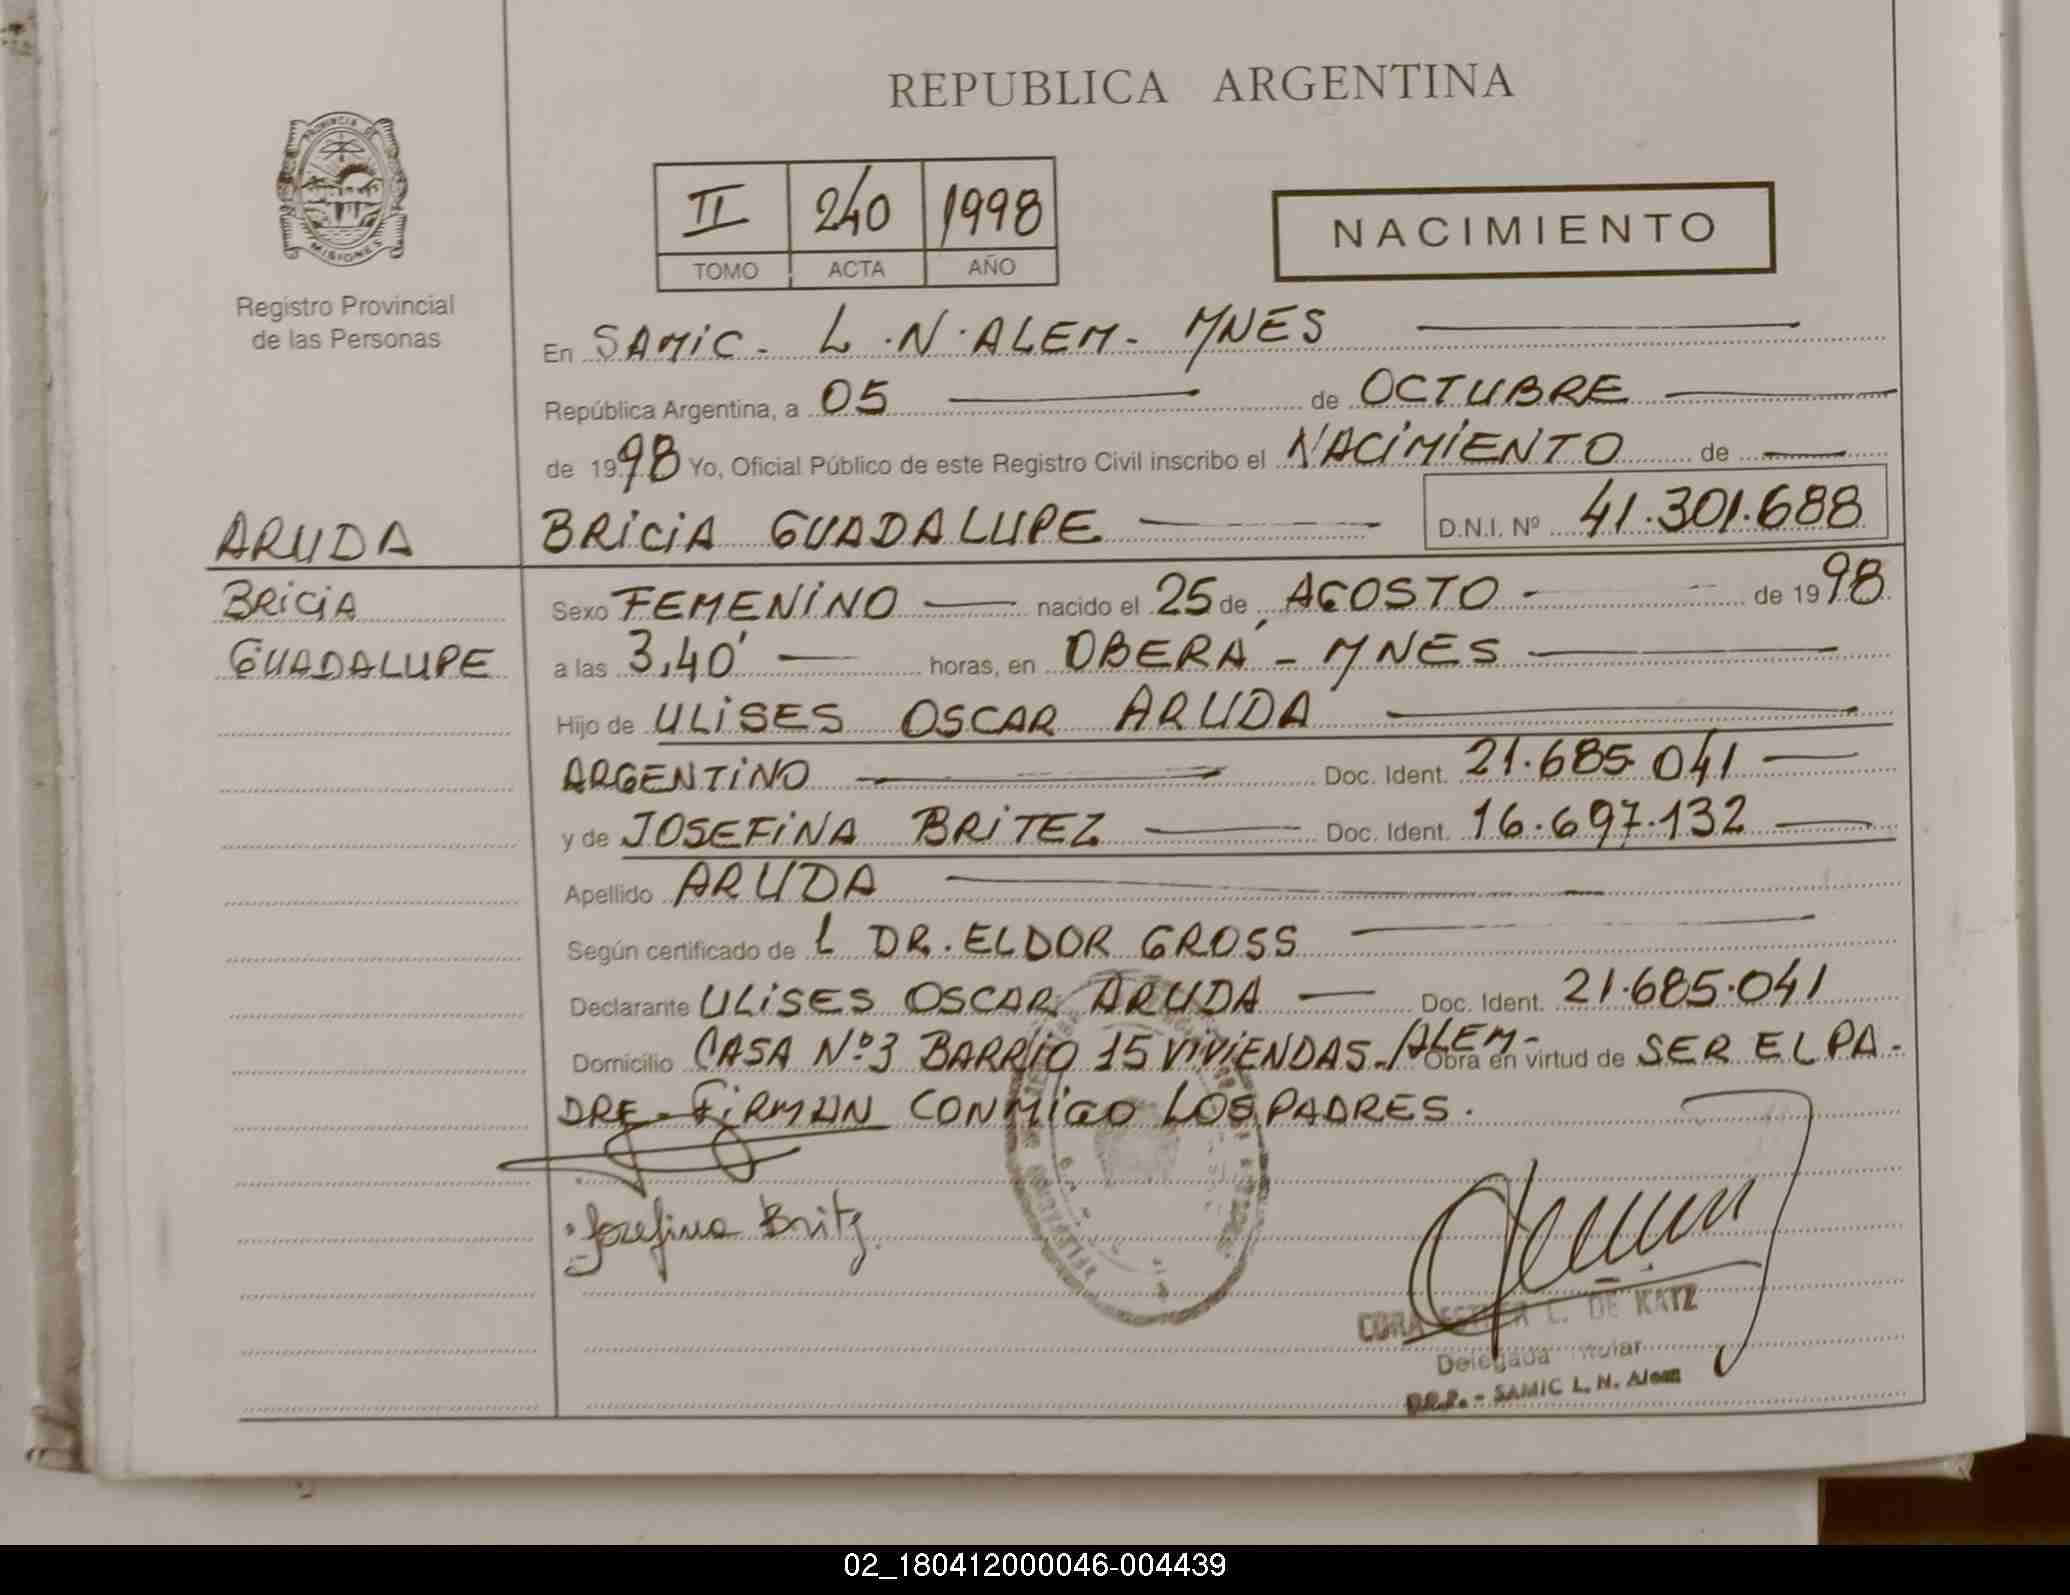 REPUBLICA ARGENTINA
PROVINCIA DE
MISIONES
Registro Provincial
de las Personas
II 240 1998
TOMO ACTA AÑO
NACIMIENTO
En SAMIC - L.N.ALEM - MNES
República Argentina, a 05 de OCTUBRE
de 1998 Yo, Oficial Público de este Registro Civil inscribo el NACIMIENTO de
BRICIA GUADALUPE D.N.I. Nº 41.301.688
ARUDA
BRICIA
GUADALUPE
Sexo FEMENINO nacido el 25 de AGOSTO de 1998
a las 3,40' horas, en OBERÁ - MNES
Hijo de ULISES OSCAR ARUDA
ARGENTINO Doc. Ident. 21.685.041
y de JOSEFINA BRITEZ Doc. Ident. 16.697.132
Apellido ARUDA
Según certificado de L DR. ELDOR GROSS
Declarante ULISES OSCAR ARUDA Doc. Ident. 21.685.041
Domicilio CASA Nº3 BARRIO 15 VIVIENDAS-/ALEM- Obra en virtud de SER EL PA-
DRE - FIRMAN CONMIGO LOS PADRES.
Josefina Britz
CORA ESTHER L. DE KATZ
Delegada Titular
SAMIC L. N. Alem
02_180412000046-004439